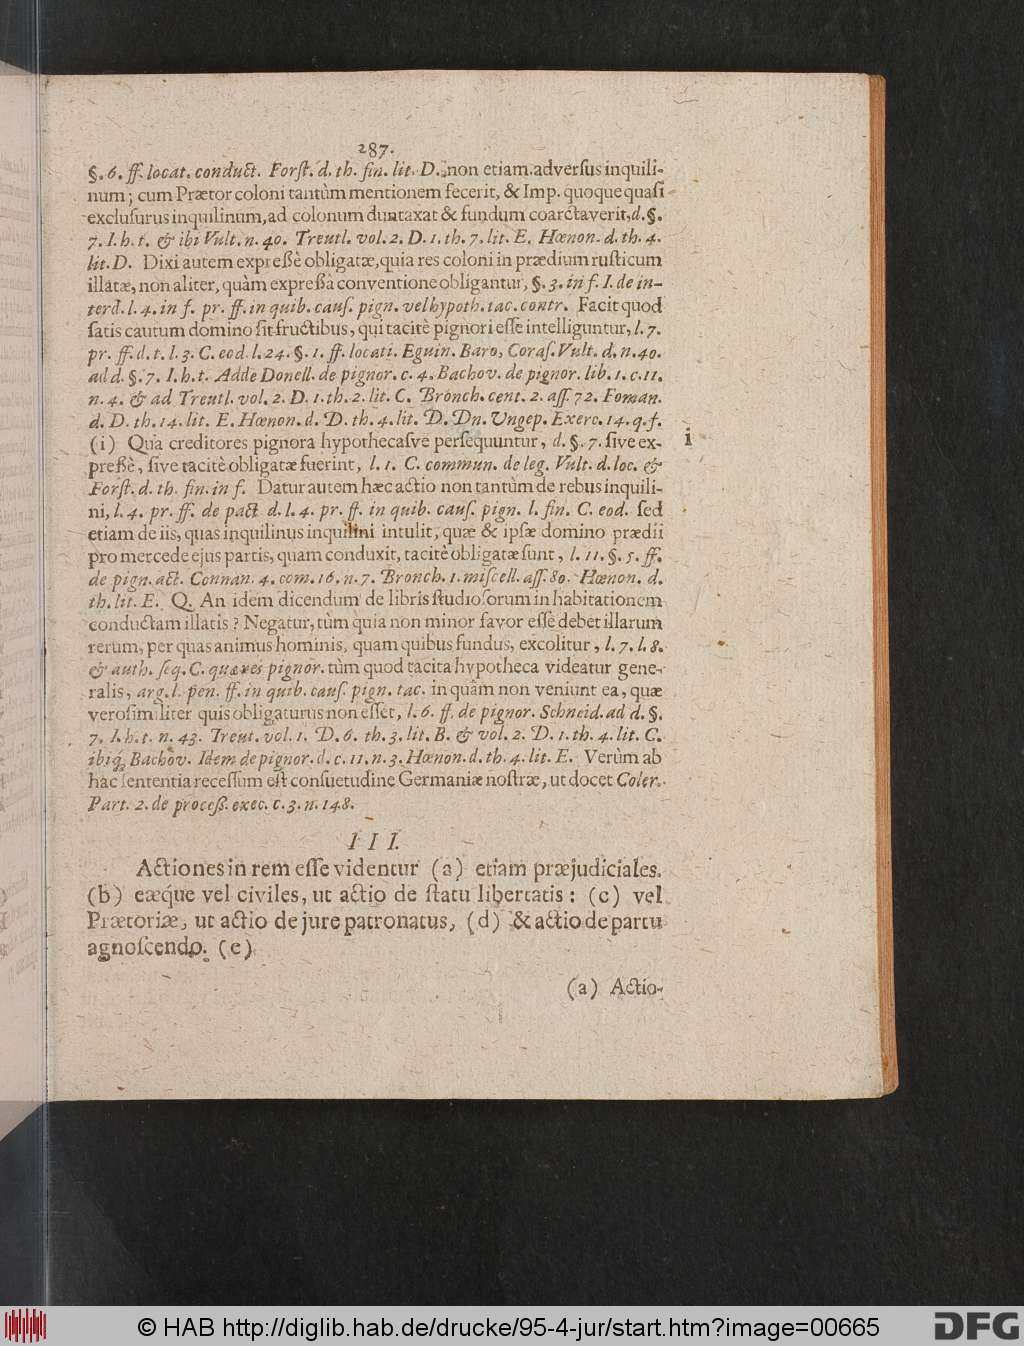 287.
§. 6. ff. locat. conduct. Forſt. d. th. fin. lit. D. non etiam adverſus inquili-
num; cum Prætor coloni tantùm mentionem fecerit, & Imp. quoque quaſi
excluſurus inquilinum, ad colonum duntaxat & fundum coarctaverit, d. §.
7. I. h. t. & ibi Vult. n. 40. Treutl. vol. 2. D. 1. th. 7. lit. E. Hœnon. d. th. 4.
lit. D. Dixi autem expreßè obligatæ, quia res coloni in prædium ruſticum
illatæ, non aliter, quàm expreßâ conventione obligantur, §. 3. in f. I. de in-
terd. l. 4. in f. pr. ff. in quib. cauſ. pign. vel hypoth. tac. contr. Facit quod
ſatis cautum domino ſit fructibus, qui tacitè pignori eſſe intelliguntur, l. 7.
pr. ff. d. t. l. 3. C. eod. l. 24. §. 1. ff. locati. Eguin. Baro, Coraſ. Vult. d. n. 40.
ad d. §. 7. I. h. t. Adde Donell. de pignor. c. 4. Bachov. de pignor. lib. 1. c. 11.
n. 4. & ad Treutl. vol. 2. D. 1. th. 2. lit. C. Bronch. cent. 2. aſſ. 72. Foman.
d. D. th. 14. lit. E. Hœnon. d. D. th. 4. lit. D. Dn. Ungep. Exerc. 14. q. f.
(i) Quâ creditores pignora hypothecaſve perſequuntur, d. §. 7. ſive ex-
i
preßè, ſive tacitè obligatæ fuerint, l. 1. C. commun. de leg. Vult. d. loc. &
Forſt. d. th. fin. in f. Datur autem hæc actio non tantùm de rebus inquili-
ni, l. 4. pr. ff. de pact. d. l. 4. pr. ff. in quib. cauſ. pign. l. fin. C. eod. ſed
etiam de iis, quas inquilinus inquilini intulit, quæ & ipſæ domino prædii
pro mercede ejus partis, quam conduxit, tacitè obligatæ ſunt, l. 11. §. 5. ff.
de pign. act. Connan. 4. com. 16. n. 7. Bronch. 1. miſcell. aſſ. 80. Hœnon. d.
th. lit. E. Q. An idem dicendum de libris ſtudioſorum in habitationem
conductam illatis? Negatur, tùm quia non minor favor eſſe debet illarum
rerum, per quas animus hominis, quam quibus fundus, excolitur, l. 7. l. 8.
& auth. ſeq. C. quæ res pignor. tùm quod tacita hypotheca videatur gene-
ralis, arg. l. pen. ff. in quib. cauſ. pign. tac. in quâm non veniunt ea, quæ
veroſimiliter quis obligaturus non eſſet, l. 6. ff. de pignor. Schneid. ad d. §.
7. I. h. t. n. 43. Treut. vol. 1. D. 6. th. 3. lit. B. & vol. 2. D. 1. th. 4. lit. C.
ibiq́; Bachov. Idem de pignor. d. c. 11. n. 3. Hœnon. d. th. 4. lit. E. Verùm ab
hac ſententia receſſum eſt conſuetudine Germaniæ noſtræ, ut docet Coler.
Part. 2. de proceß. exec. c. 3. n. 148.
III.
Actiones in rem eſſe videntur (a) etiam præjudiciales.
(b) eæq́ue vel civiles, ut actio de ſtatu libertatis: (c) vel
Prætoriæ, ut actio de jure patronatus, (d) & actio de partu
agnoſcendo. (e)
(a) Actio-
© HAB http://diglib.hab.de/drucke/95-4-jur/start.htm?image=00665
DFG